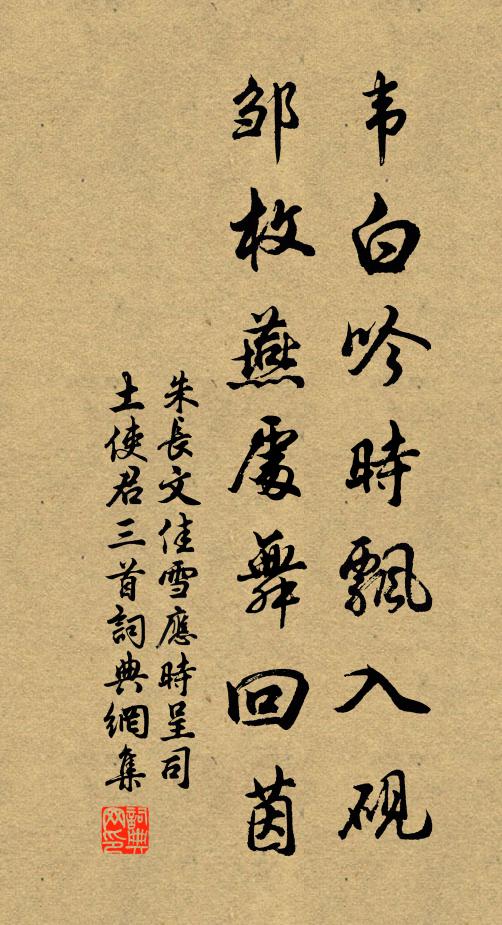 韦白吟時飄入硯
邹枚燕處舞回茵
朱長文佳雪應時呈司
土使君三首詞典網集
詞典网印